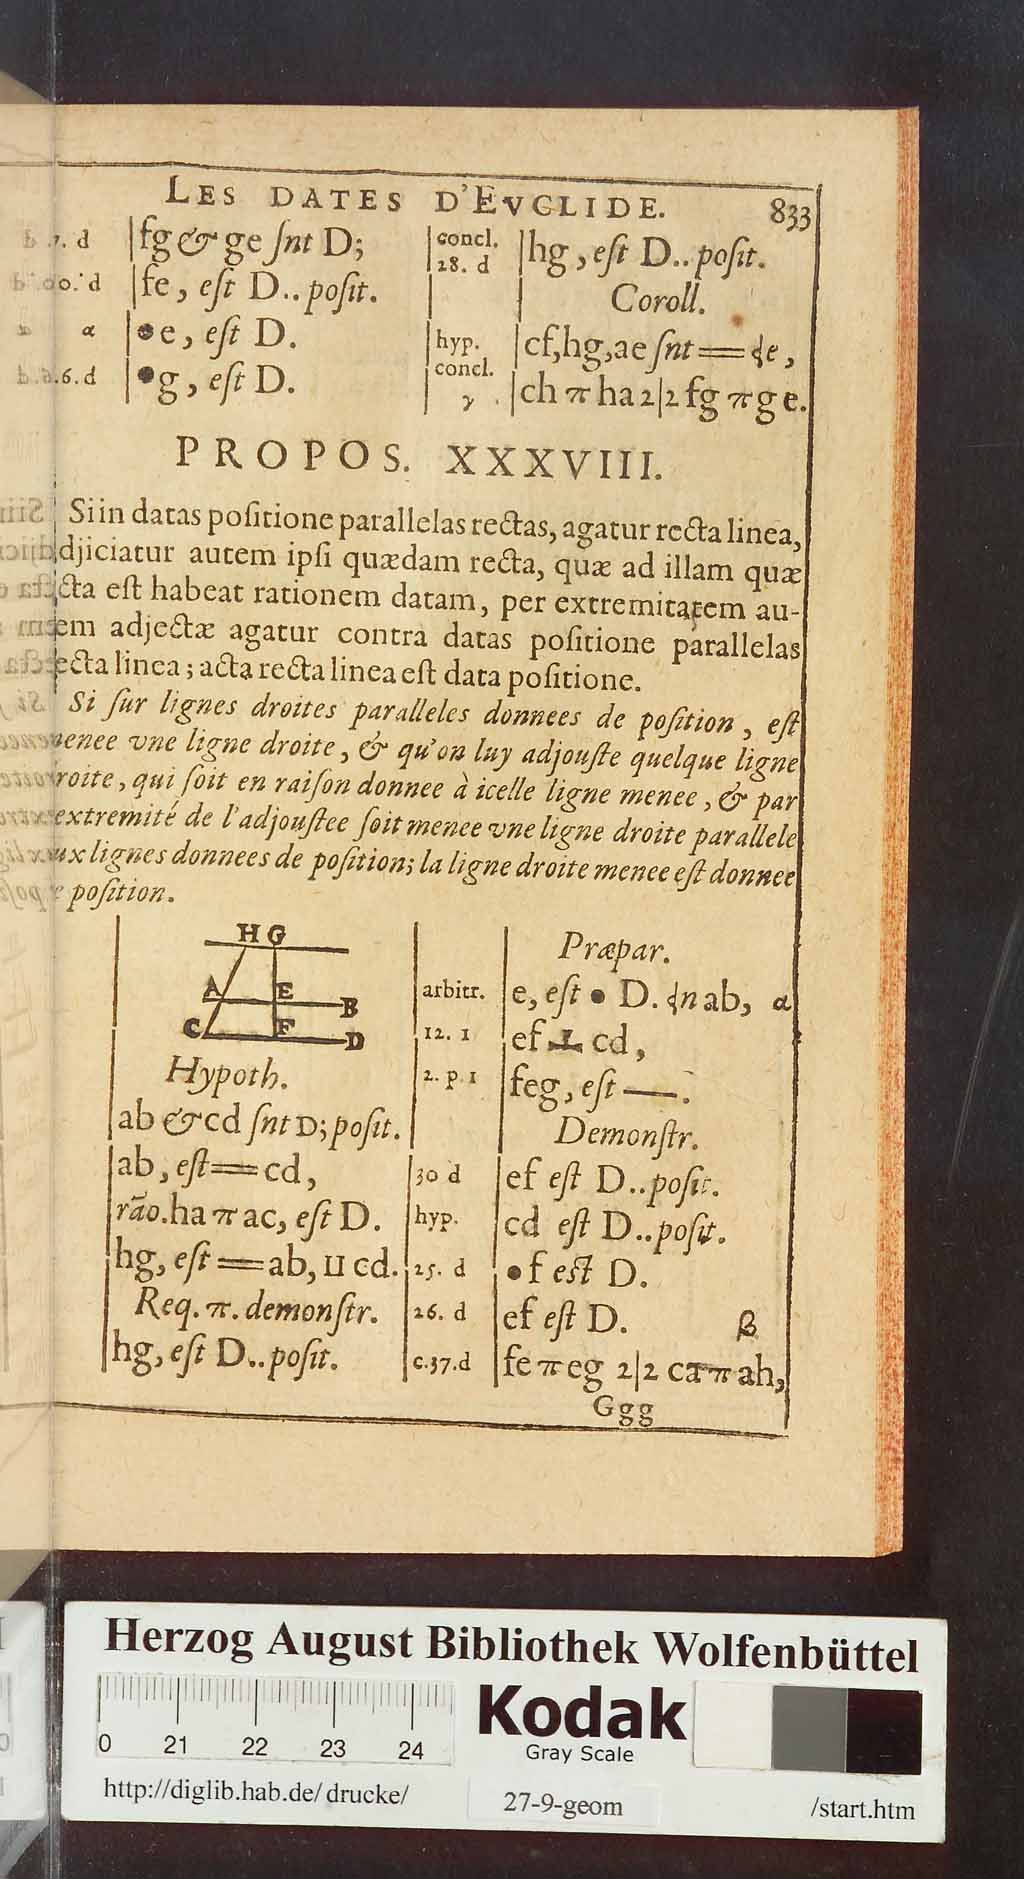 LES DATES D'EVCLIDE. 833
fg & ge snt D;
fe, est D.. posit.
α ●e, est D.
6.d ●g, est D.
concl. 28. d hg, est D.. posit.
Coroll.
hyp. cf, hg, ae snt = ɖe,
concl. γ ch π ha 2|2 fg π ge.
PROPOS. XXXVIII.
Si in datas positione parallelas rectas, agatur recta linea,
djiciatur autem ipsi quædam recta, quæ ad illam quæ
cta est habeat rationem datam, per extremitatem au-
em adjectæ agatur contra datas positione parallelas
ecta linea; acta recta linea est data positione.
Si sur lignes droites paralleles donnees de position, est
enee vne ligne droite, & qu'on luy adjouste quelque ligne
roite, qui soit en raison donnee à icelle ligne menee, & par
extremité de l'adjoustee soit menee vne ligne droite parallele
ux lignes donnees de position; la ligne droite menee est donnee
position.
H G
A E B
C F D
Hypoth.
ab & cd snt D; posit.
ab, est = cd,
rão. ha π ac, est D.
hg, est = ab, II cd.
Req. π. demonstr.
hg, est D.. posit.
Præpar.
arbitr. e, est ● D. ɖn ab, α
12. 1 ef ⊥ cd,
2. p. 1 feg, est —.
Demonstr.
30 d ef est D.. posit.
hyp. cd est D.. posit.
25. d ●f est D.
26. d ef est D. β
c. 37. d fe π eg 2|2 ca π ah,
Ggg
Herzog August Bibliothek Wolfenbüttel
0 21 22 23 24
Kodak
Gray Scale
http://diglib.hab.de/drucke/ 27-9-geom /start.htm